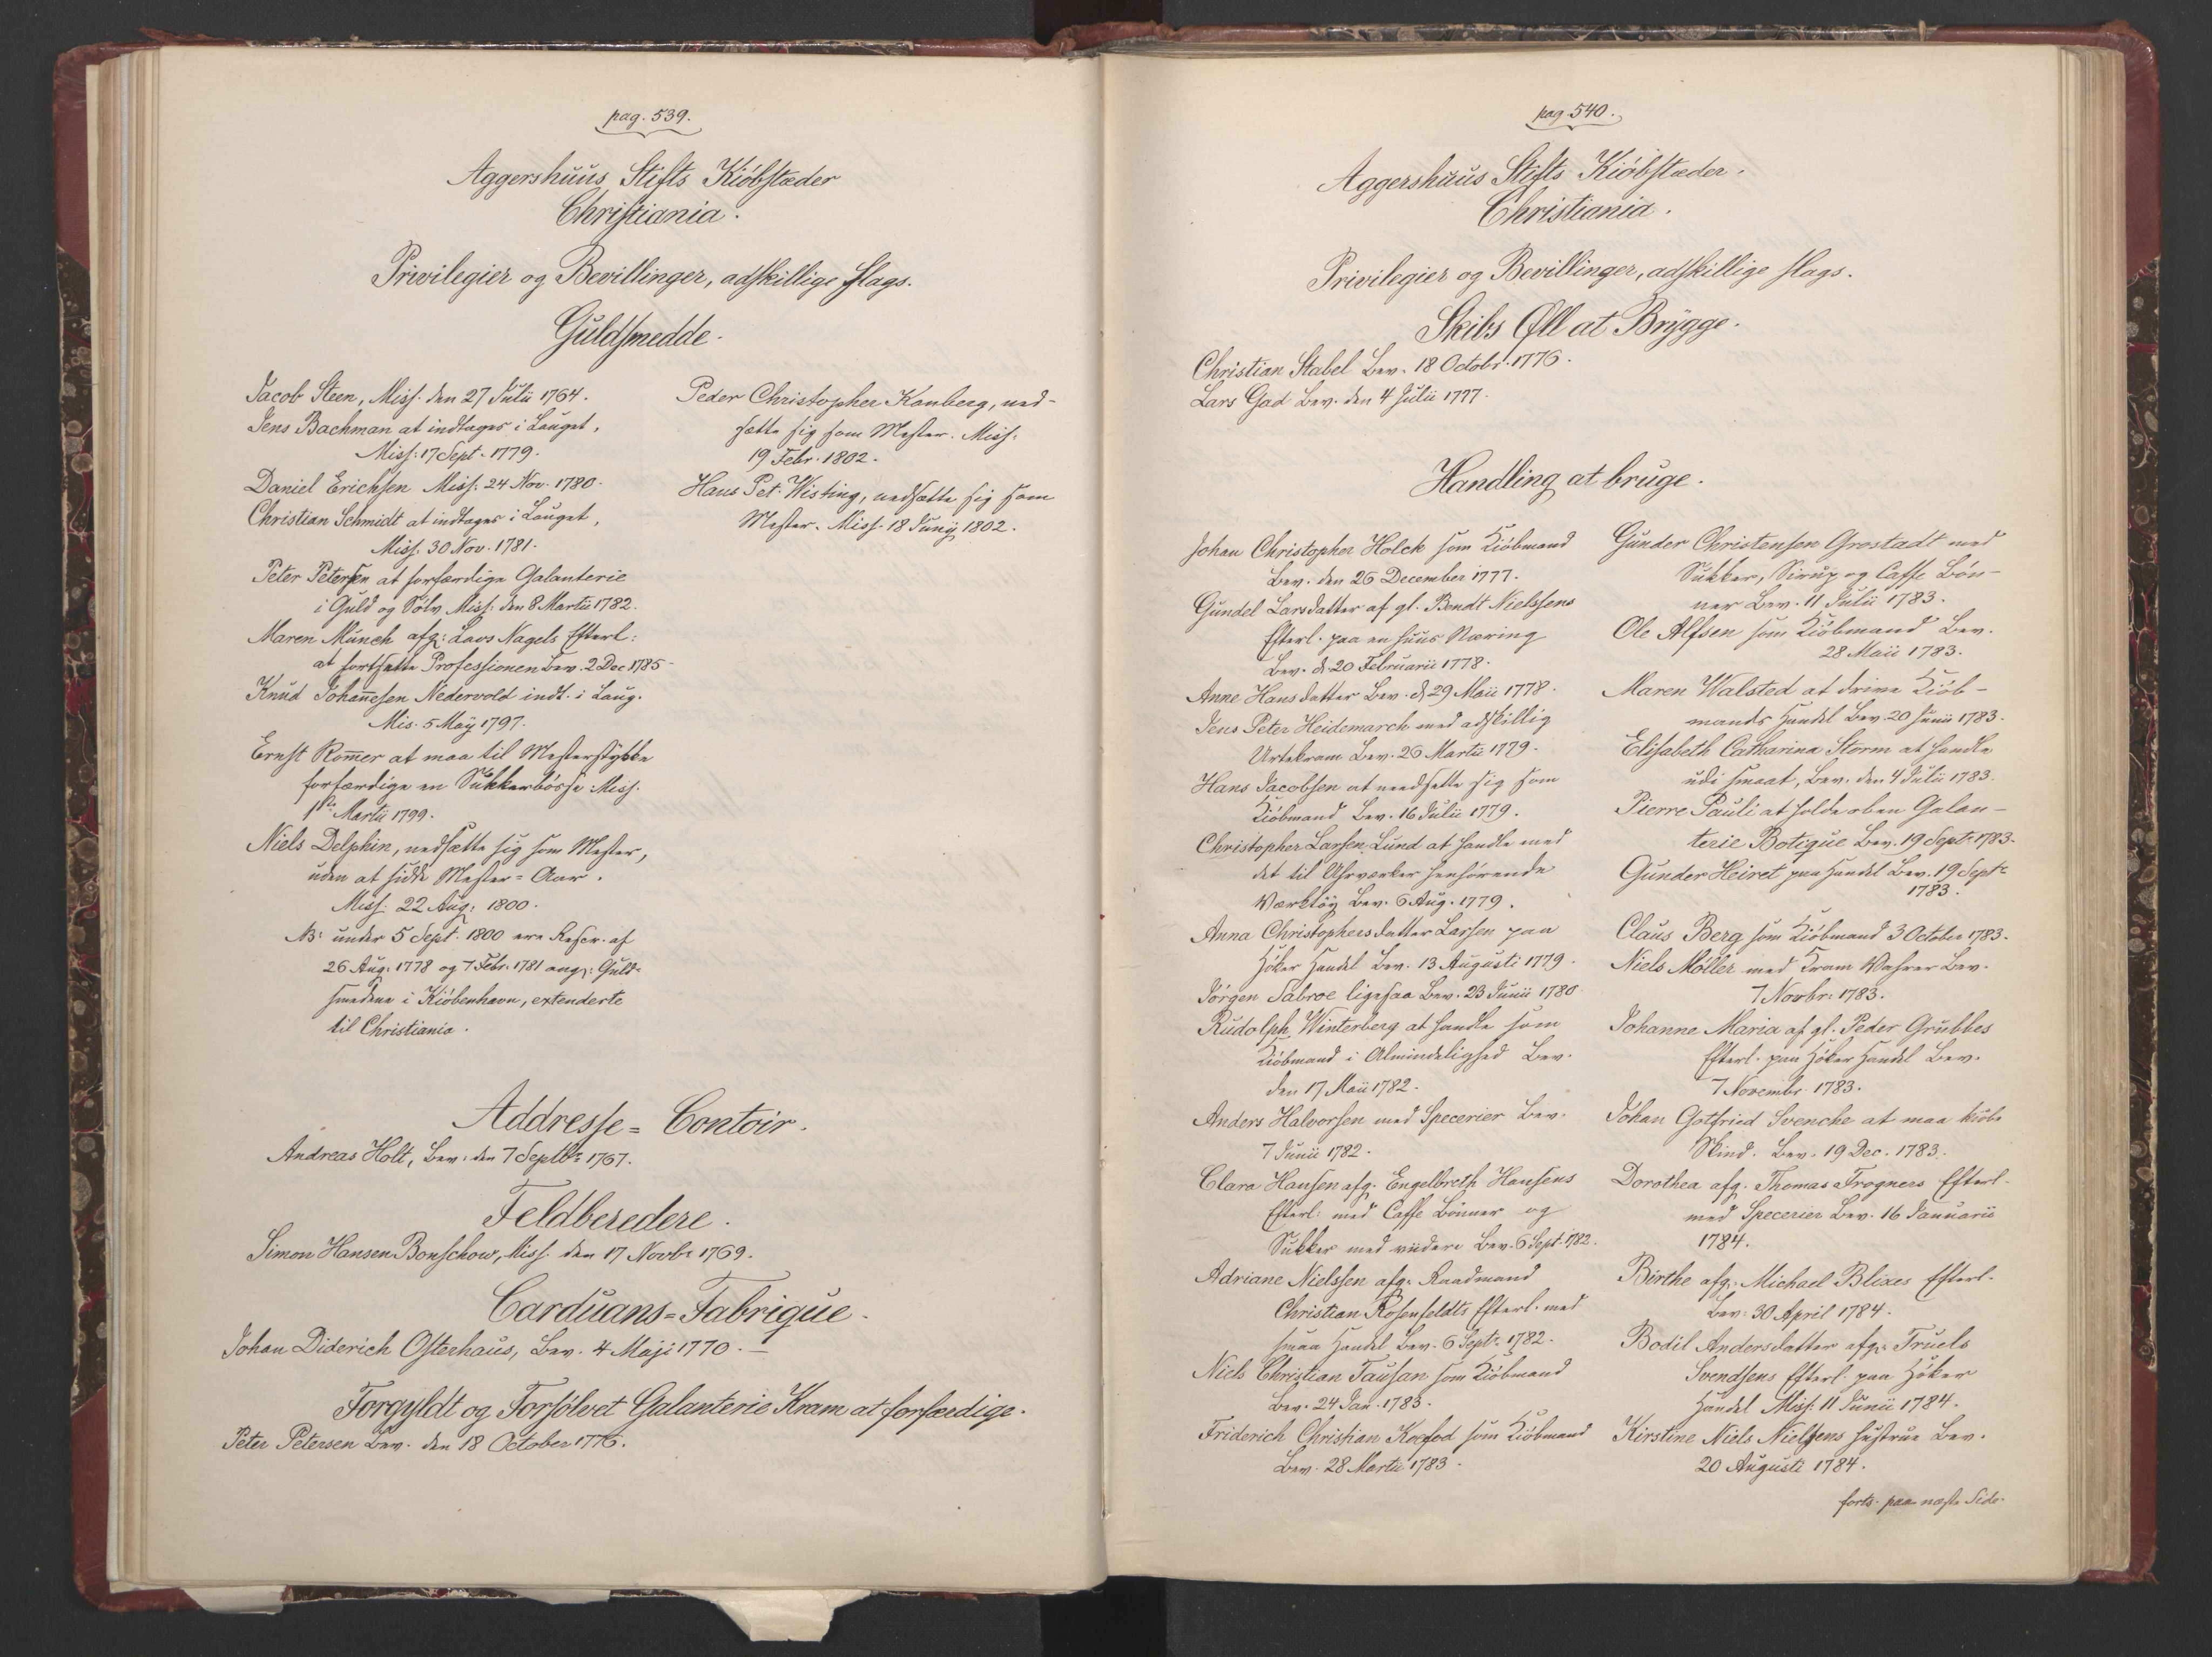 pag. 539.
Aggershuus Stifts Kiöbstæder
Christiania.
Privilegier og Bevillinger, adskillige slags.
Guldsmedde.
Jacob Steen, Miss: den 27 Julii 1764.
Jens Bachman at indtages i Lauget,
Miss: 17 Sept. 1779.
Daniel Erichsen Miss: 24 Nov. 1780.
Christian Schmidt at indtages i Lauget,
Miss: 30 Nov. 1781.
Peter Petersen at forfærdige Galanterie
i Guld og Sølv Miss: den 8 Martii 1782.
Maren Munch afg: Lars Nagels Efterl:
at fortsætte Professionen Bev. 2 Dec 1785.
Knud Johan̄esen Nedervold indt. i Laug.
Mis. 5 Maÿ 1797.
Ernst Rom̄er at maa til Mesterstykke
forfærdige en Sukkerbösse Miss.
1ste Martii 1799.
Niels Delphin, nedsætte sig som Mester,
uden at sidde Mester= Aar.
Miss: 22 Aug: 1800.
NB: under 5 Sept. 1800 ere Rescr. af
26 Aug: 1778 og 7 Febr. 1781 ang: Guld=
smedene i Kiöbenhavn, extenderte
til Christiania.
Peder Christopher Kanberg, ned-
sætte sig som Mester. Miss:
19 Febr. 1802.
Hans Pet. Wisting, nedsætte sig som
Mester. Miss. 18 Junÿ 1802.
Addresse= Contoir.
Andreas Holt, Bev: den 7 Septbr 1767.
Feldberedere.
Simon Hansen Bonschow, Miss. den 17 Novbr 1769.
Carduans=Fabrique.
Johan Diderich Osterhaus, Bev. 4 Maji 1770.
Forgyldt og Forsölvet Galanterie Kram at forfærdige.
Peter Petersen Bev. den 18 October 1776.
pag. 540.
Aggershuus Stifts Kiöbstæder.
Christiania.
Privilegier og Bevillinger, adskillige slags.
Skibs Øll at Brÿgge.
Christian Stabel Bev. 18 Octobr. 1776.
Lars Gad Bev. den 4 Julii 1777.
Handling at bruge.
Johan Christopher Holck som Kiöbmand
Bev. den 26 December 1777.
Gundel Larsdatter af gl. Bendt Nielssens
Efterl. paa en huus Næring
Bev. d. 20 Februarii 1778.
Anne Hansdatter Bev. d. 29 Maii 1778.
Jens Peter Heidemarch med adskillig
Urtekram Bev. 26 Martii 1779.
Hans Jacobsen at needsætte sig som
Kiöbmand Bev. 16 Julii 1779.
Christopher Larsen Lund at handle med
det til Uhrværker henhörende
Værktöy Bev. 6 Aug. 1779.
Anna Christophersdatter Larsen paa
Höker Handel Bev. 13 Augusti 1779.
Jörgen Sabroe ligesaa Bev. 23 Junii 1780
Rudolph Winterberg at handle som
Kiöbmand i Almindelighed Bev.
den 17 Maii 1782.
Anders Halvorsen med Specerier Bev.
7 Junii 1782.
Clara Hansen afg. Engelbreth Hansens
Efterl: med Caffe Bönner og
Sukker med viidere Bev. 6 Sept. 1782.
Adriane Nielssen afg. Raadmand
Christian Rosenfeldts Efterl. med
smaa Handel Bev. 6 Septr. 1782.
Niels Christian Tausan som Kiöbmand
Bev. 24 Jan. 1783.
Friderich Christian Koefod som Kiöbmand
Bev. 28 Martii 1783.
Gunder Christensen Grostadt med
Sukker, Sirup og Caffe Bön-
ner Bev. 11 Julii 1783.
Ole Alfsen som Kiöbmand Bev.
28 Maii 1783.
Maren Walsted at drive Kiöb-
mands Handel Bev. 20 Junii 1783.
Elisabeth Catharina Storm at handle
udi smaat, Bev. den 4 Julii 1783.
Pierre Pauli at holde oben Galan-
terie Botique Bev. 19 Sept. 1783.
Gunder Heiret paa Handel Bev. 19 Sept=
1783.
Claus Berg som Kiöbmand 3 October 1783.
Niels Möller med Kram Wahrer Bev.
7 Novbr: 1783.
Johanne Maria af gl. Peder Grubbes
Efterl. paa Höker Handel Bev.
7 Novembr 1783.
Johan Gotfried Svencke at maa kiöbe
Skind. Bev. 19 Dec. 1783.
Dorothea afg. Thomas Frogners Efterl.
med Specerier Bev. 16 Januarii
1784.
Birthe afg. Michael Blixes Efterl.
Bev: 30 April 1784.
Bodil Andersdatter afg. Truels
Svendsens Efterl. paa Höker
Handel Miss: 11 Junii 1784.
Kirstine Niels Nielsens hustrue Bev.
20 Augusti 1784.
forts. paa næste Side.